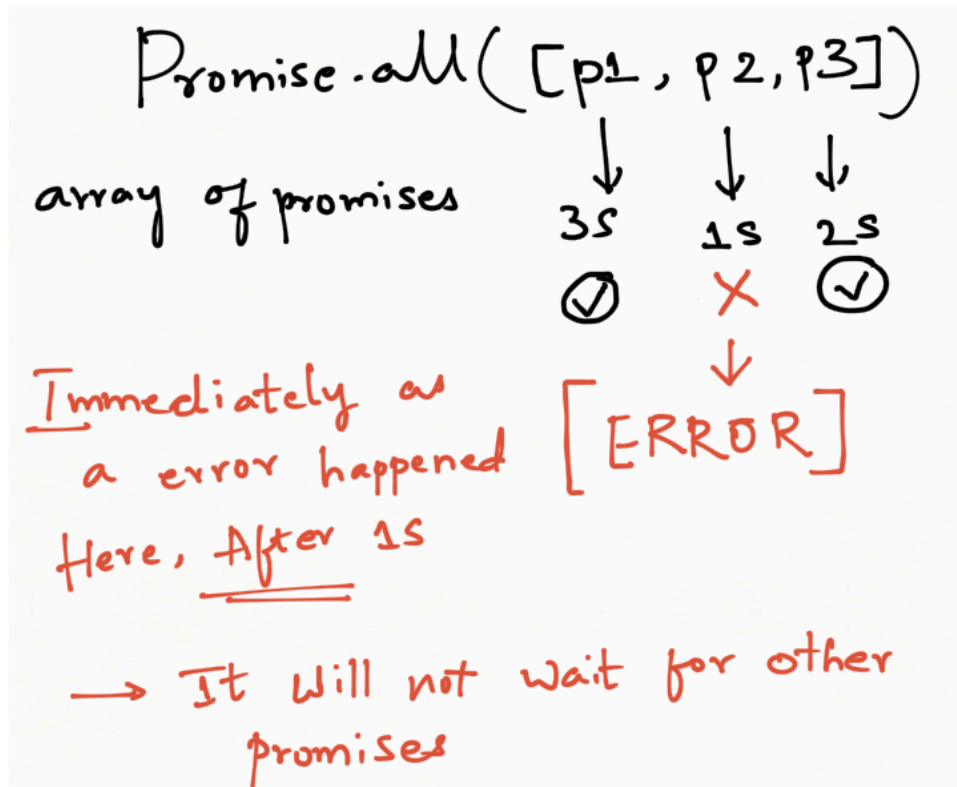 Promise.all([p1, p2, p3])
↓ ↓ ↓
array of promises
3S 1S 2S
✓ X ✓
↓
Immediately as
a error happened
[ERROR]
Here, After 1S
→ It will not wait for other
promises